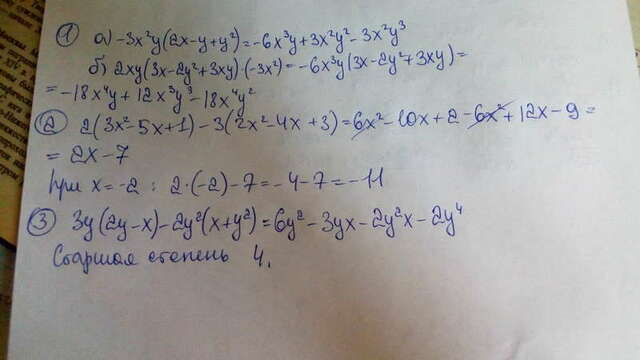 ① а) -3x²y(2x-y+y²)=-6x³y+3x²y²-3x²y³
б) 2xy(3x-2y²+3xy)·(-3x²)=-6x³y(3x-2y²+3xy)=
=-18x⁴y+12x³y³-18x⁴y²
② 2(3x²-5x+1)-3(2x²-4x+3)=6x²-10x+2-6x²+12x-9=
=2x-7
при x=-2 : 2·(-2)-7=-4-7=-11
③ 3y(2y-x)-2y²(x+y²)=6y²-3yx-2y²x-2y⁴
Старшая степень 4.